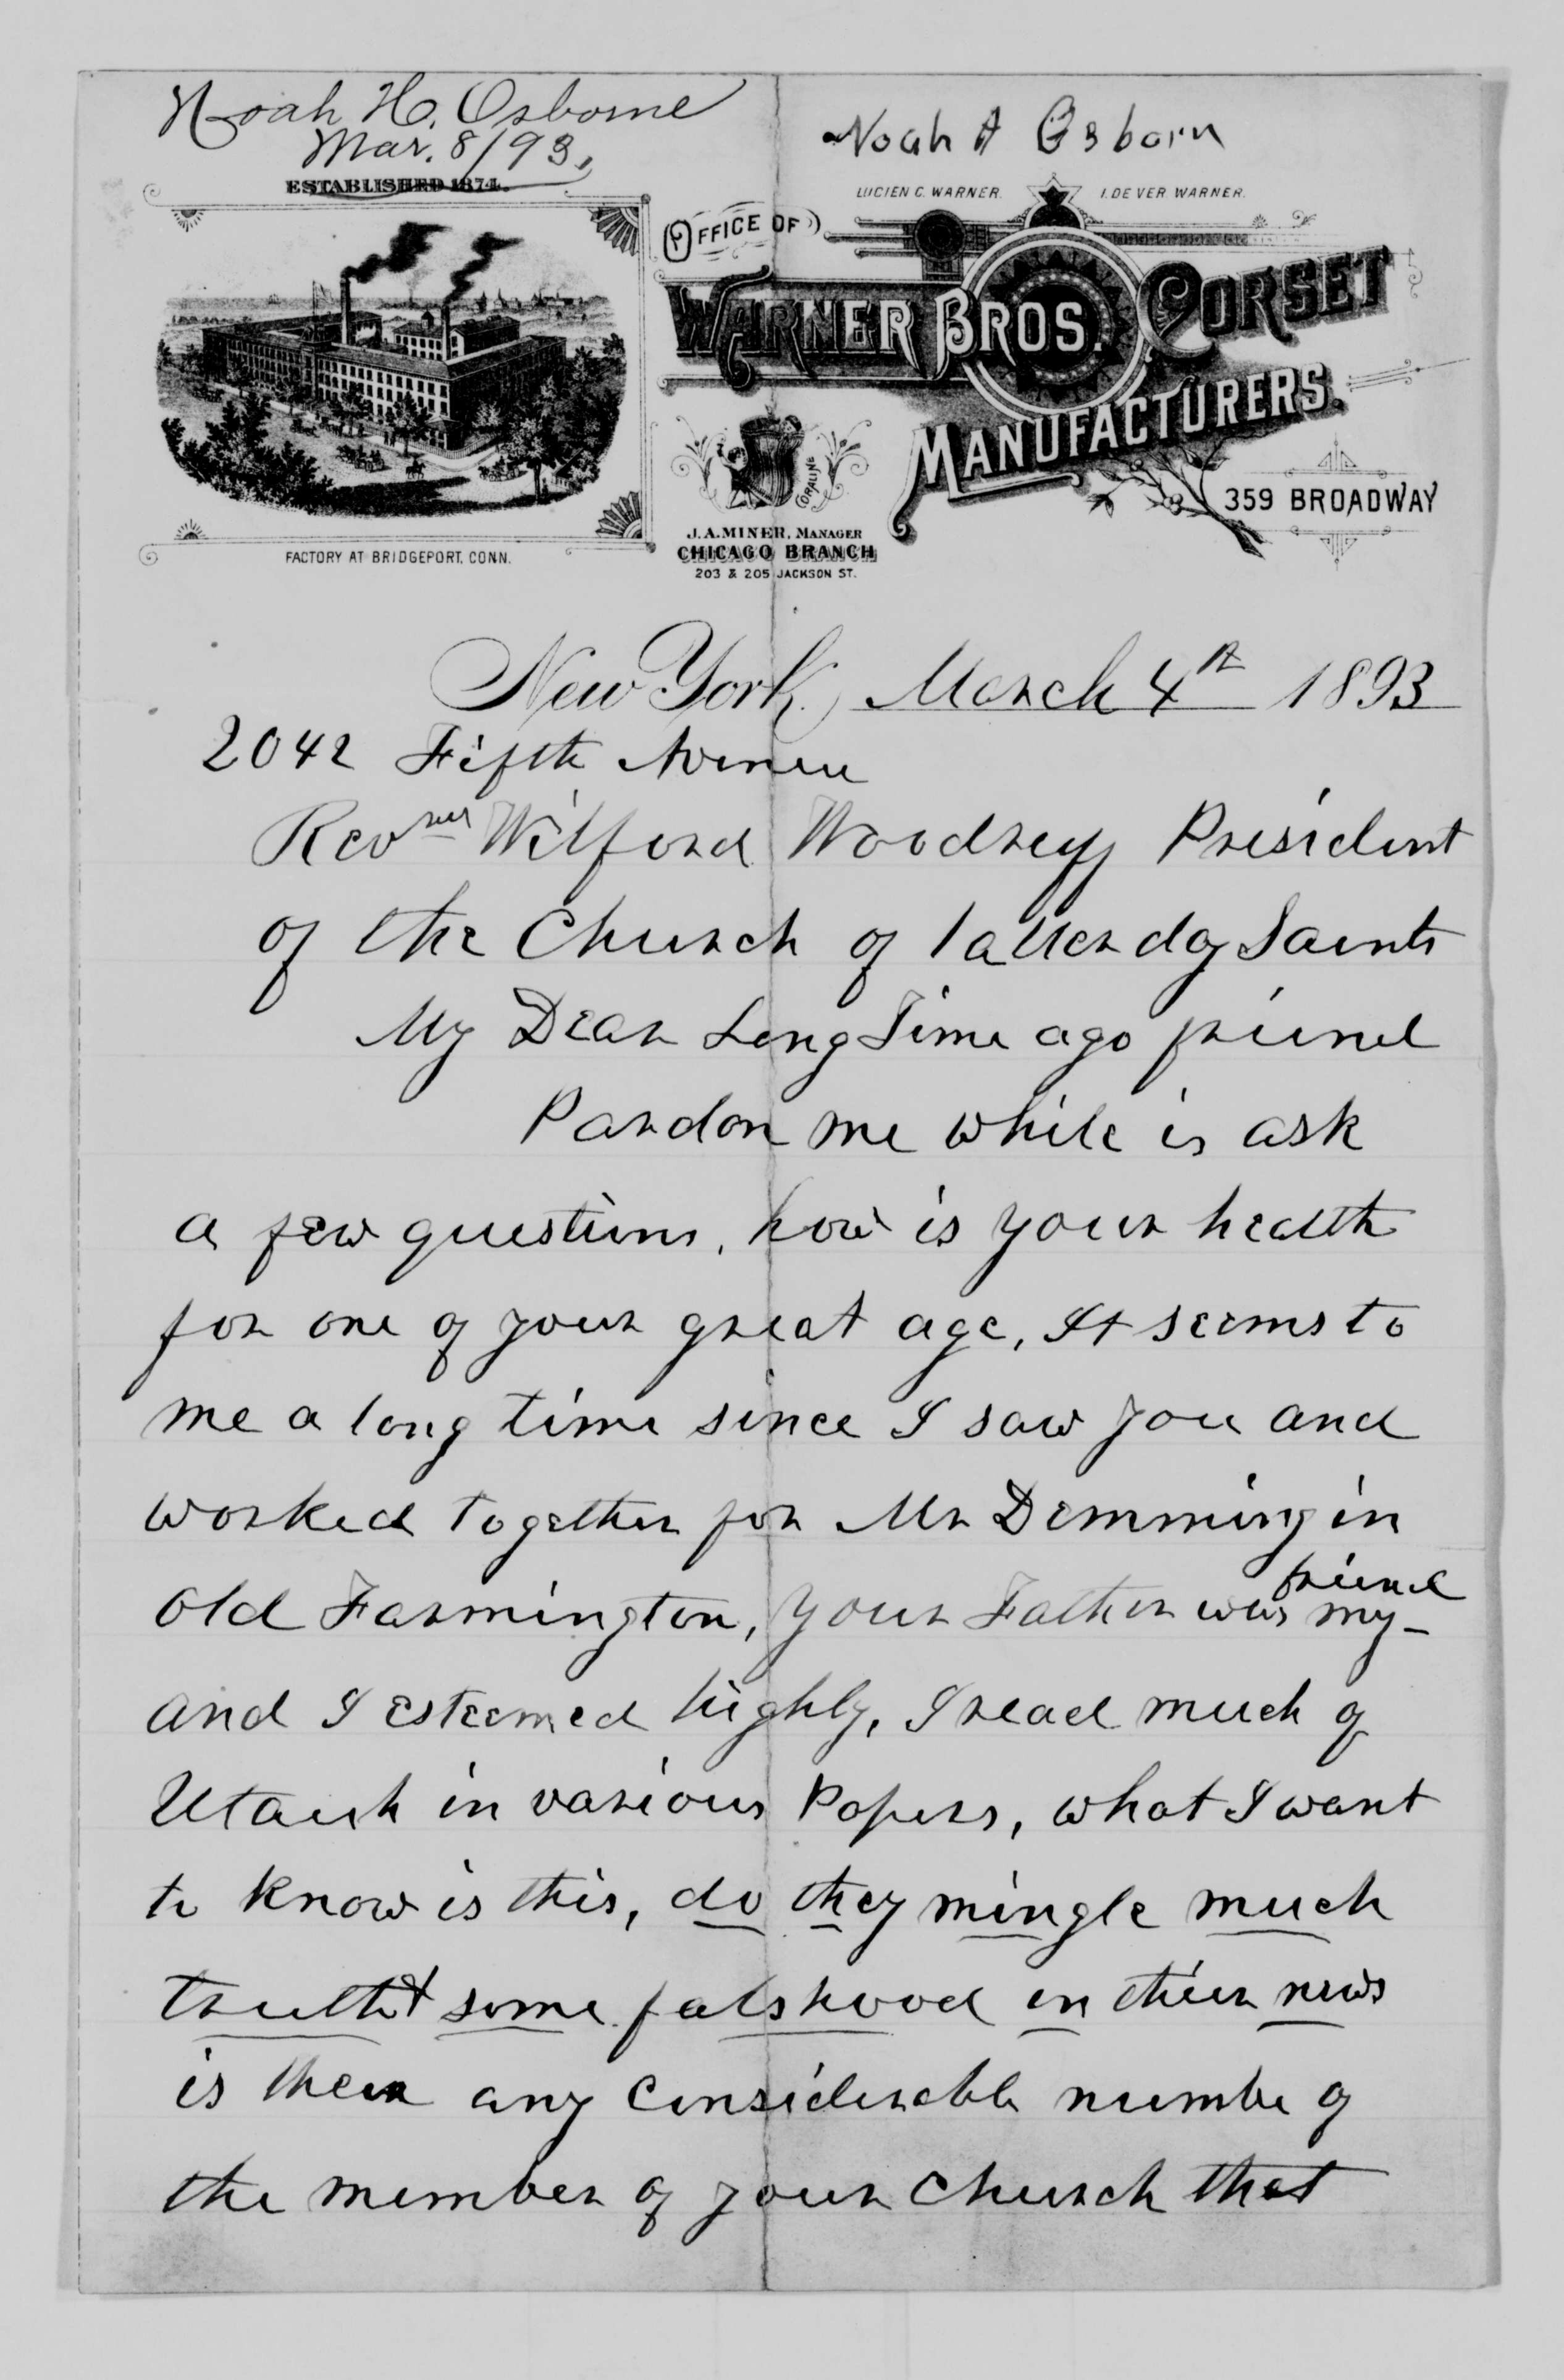 Noah H. Osborne
Mar. 8/93,
Noah A Osborn
ESTABLISHED 1874.
LUCIEN C. WARNER. I. DE VER WARNER.
OFFICE OF
WARNER BROS. CORSET
MANUFACTURERS.
CORALINE
359 BROADWAY
J. A. MINER, MANAGER
CHICAGO BRANCH
203 & 205 JACKSON ST.
FACTORY AT BRIDGEPORT, CONN.
New York, March 4th 1893
2042 Fifth Avenue
Wilford Woodruff President
of the Church of latter day Saints
My Dear Long Time ago friend
Pardon me while is ask
a few questions, how is your health
for one of your great age, It seems to
me a long time since I saw you and
worked together for Mr Demming in
old Farmington, your Father was my friend
and I esteemed highly, I read much of
Utauh in various Papers, what I want
to know is this, do they mingle much
truth & some falshood in their news
is their any considerable numbe of
the member of your church that